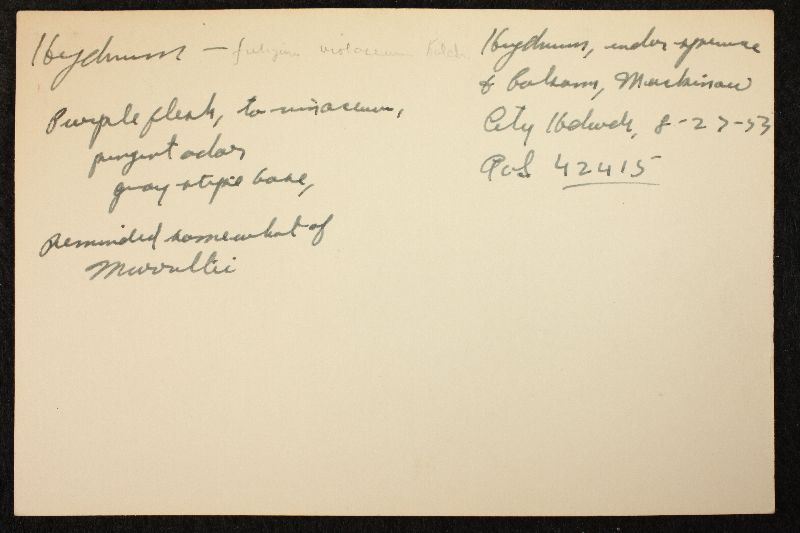 Hydnum — fuligin violaceum Kalch.
Purple flesh, to vinaceous,
pungent odor
gray stipe base,
reminded somewhat of
Murrillii
Hydnum, under spruce
& balsam, Mackinaw
City Hdwds, 8-27-53
42415